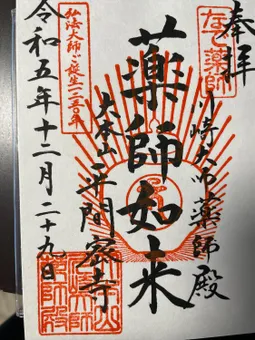 奉拝
川崎大師薬師殿
薬師如来
大本山
平間密寺
令和五年十二月二十九日
弘法大師ご誕生一二五〇年
薬師殿